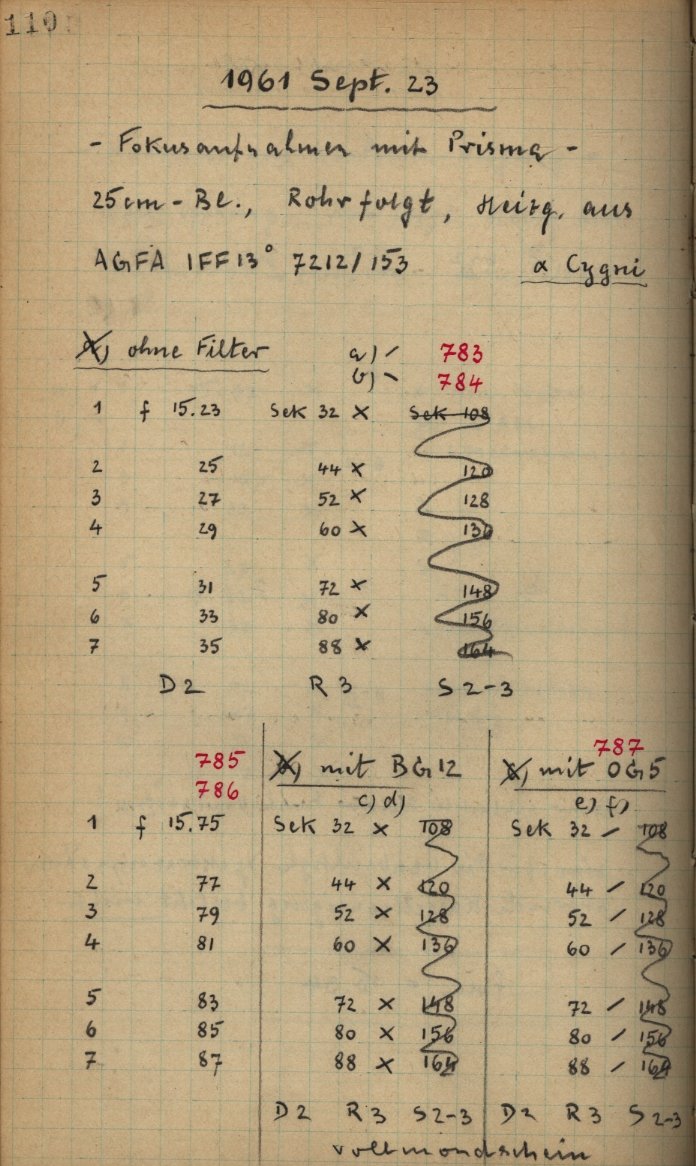 110
1961 Sept. 23
- Fokusaufnahmen mit Prisma -
25cm - Bl., Rohr folgt, Heizg. aus
AGFA IFF13° 7212/153 α Cygni
a) ohne Filter a) / 783
b) \ 784
1 f 15.23 Sek 32 x Sek 108
2 25 44 x 120
3 27 52 x 128
4 29 60 x 136
5 31 72 x 148
6 33 80 x 156
7 35 88 x 164
D2 R3 S2-3
785 b) mit BG12 787
786 c) d) c) mit OG5
e) f)
1 f 15.75 Sek 32 x 108 Sek 32 / 108
2 77 44 x 120 44 / 120
3 79 52 x 128 52 / 128
4 81 60 x 136 60 / 136
5 83 72 x 148 72 / 148
6 85 80 x 156 80 / 156
7 87 88 x 164 88 / 164
D2 R3 S2-3 D2 R3 S2-3
Vollmondschein